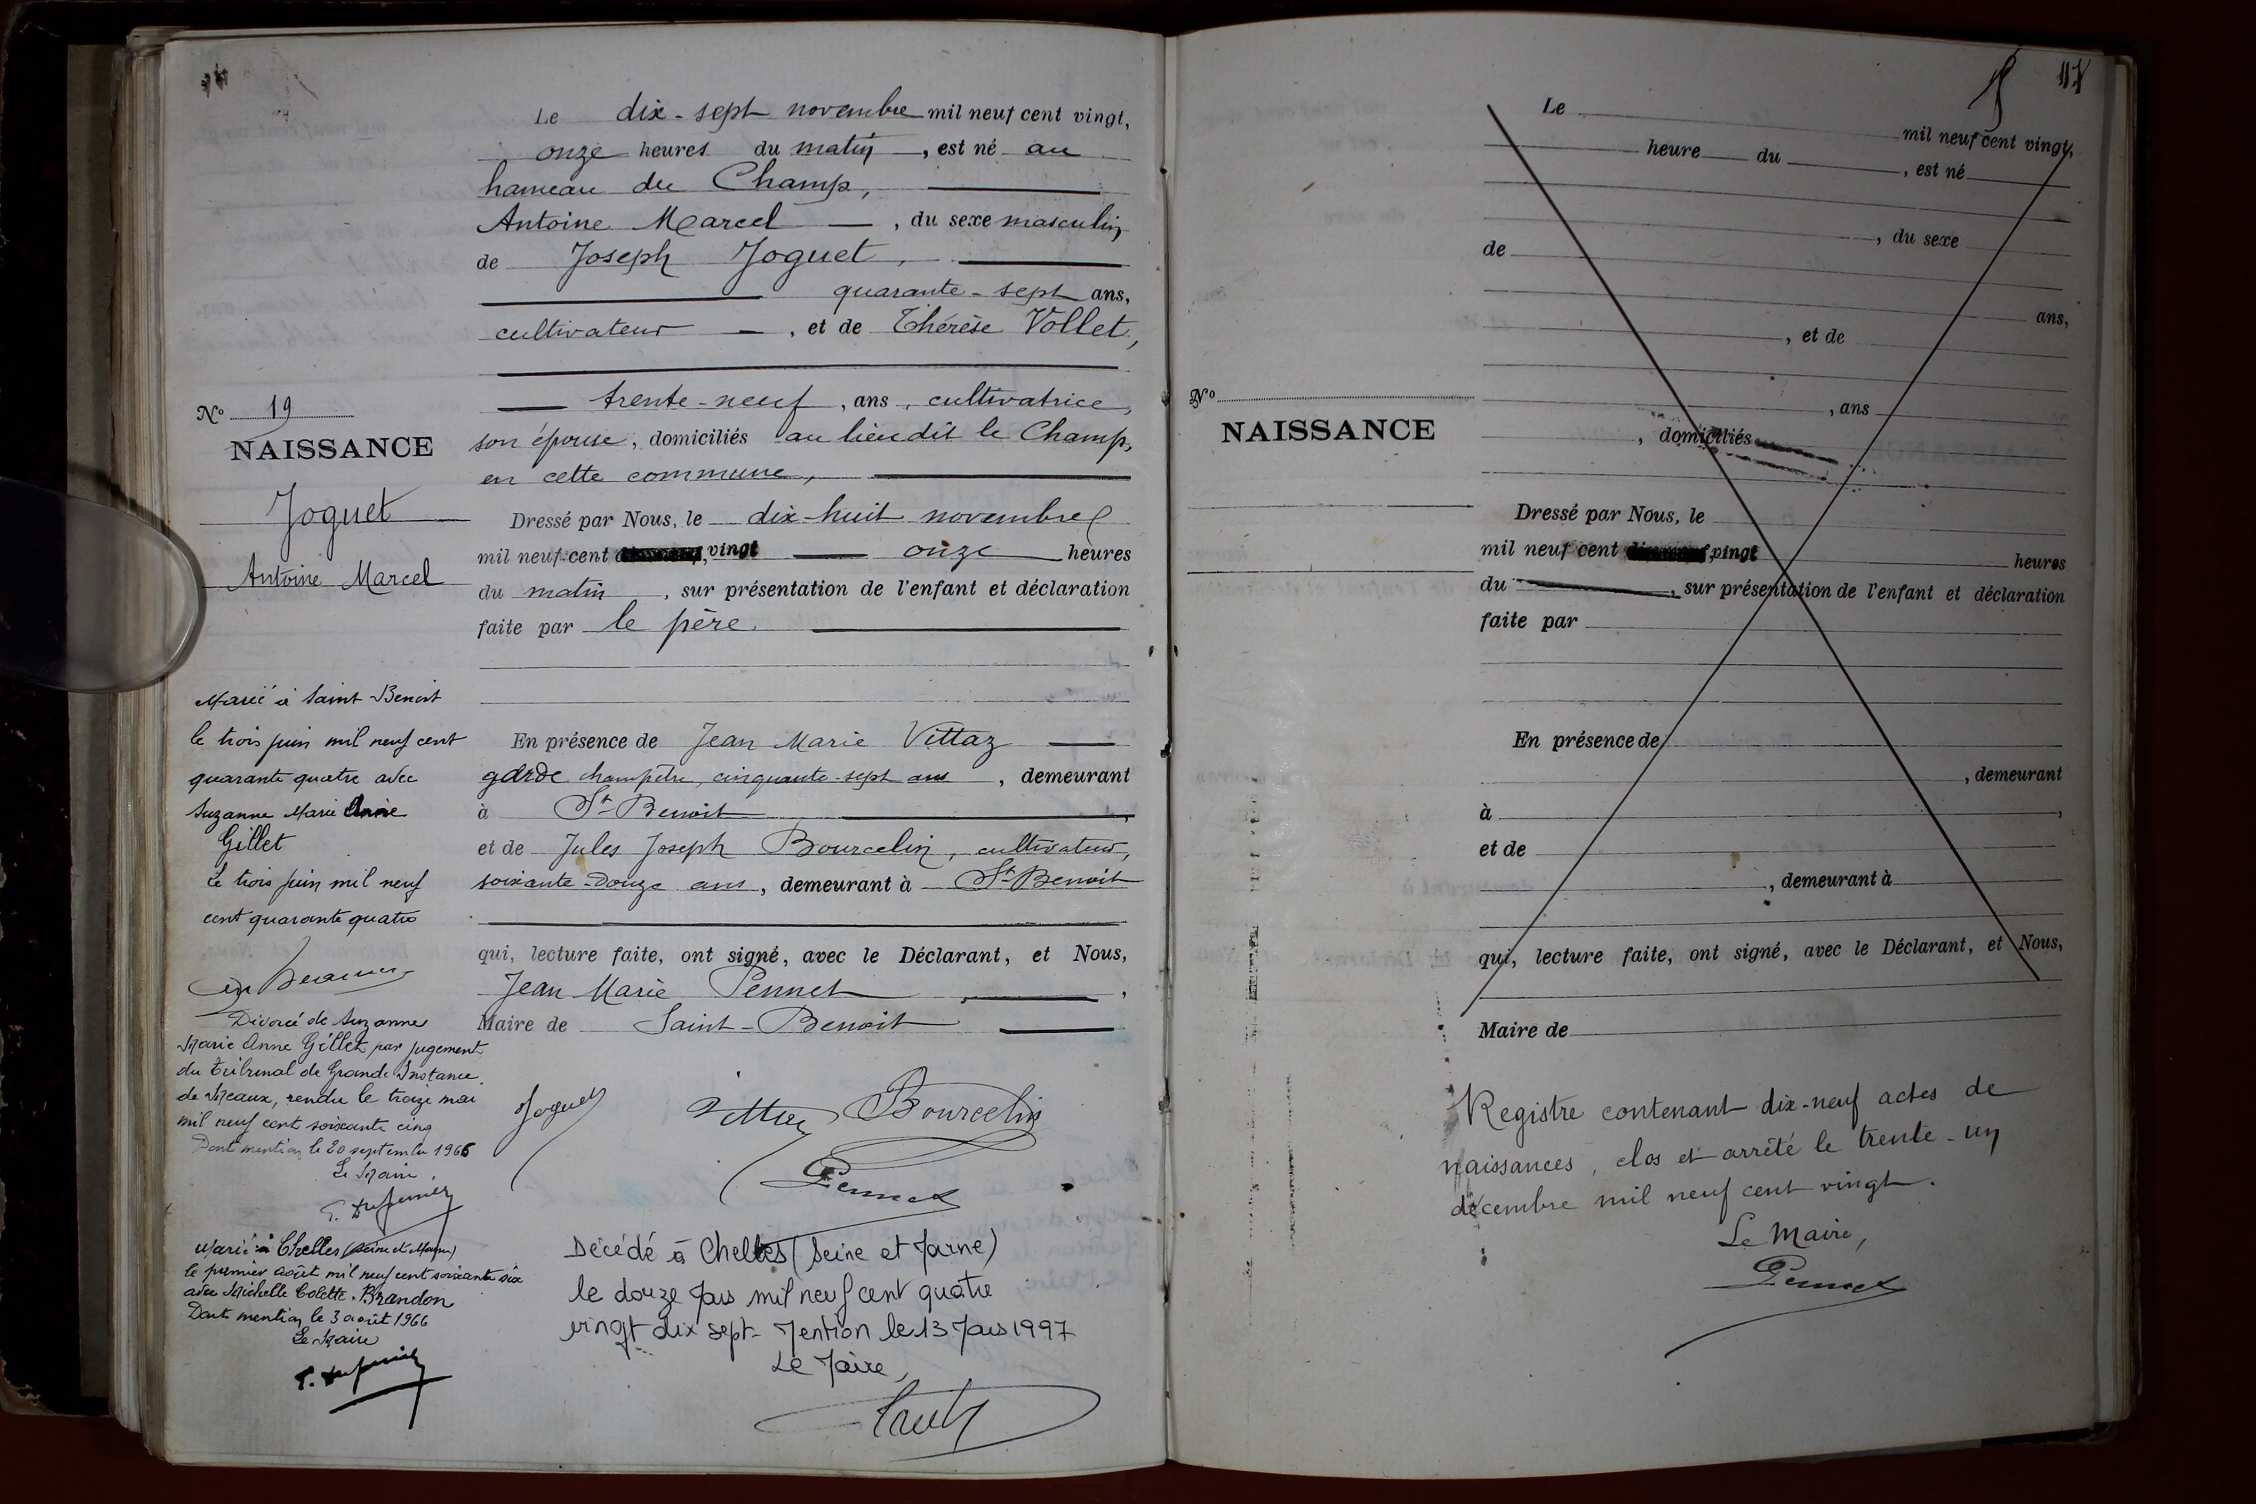 Le dix-sept novembre mil neuf cent vingt,
onze heures du matin, est né au
hameau du Champ,
Antoine Marcel, du sexe masculin
de Joseph Joguet,
quarante-sept ans,
cultivateur, et de Thérèse Vollet,
trente-neuf, ans, cultivatrice,
son épouse, domiciliés au lieu dit le Champ,
en cette commune,
Dressé par Nous, le dix-huit novembre
mil neuf cent vingt onze heures
du matin, sur présentation de l'enfant et déclaration
faite par le père.
En présence de Jean Marie Vittaz
garde champêtre, cinquante-sept ans, demeurant
à St-Benoit,
et de Jules Joseph Bourcelin, cultivateur,
soixante-douze ans, demeurant à St-Benoit
qui, lecture faite, ont signé, avec le Déclarant, et Nous,
Jean Marie Pennet,
Maire de Saint-Benoit
Joguet
Bourcelin
Pennet
Décédé à Chelles (Seine et Marne)
le douze Mars mil neuf cent quatre
vingt dix sept - Mention le 13 Mars 1997
Le Maire,
No 19
NAISSANCE
Joguet
Antoine Marcel
Marié à Saint-Benoit
le trois juin mil neuf cent
quarante quatre avec
Suzanne Marie Anne
Gillet
Le trois juin mil neuf
cent quarante quatre
Divorcé de Suzanne
Marie Anne Gillet par jugement
du Tribunal de Grande Instance
de Meaux, rendu le treize mai
mil neuf cent soixante cinq
Dont mention le 20 septembre 1966
Le Maire
Marié à Chelles (Seine et Marne)
le premier août mil neuf cent soixante six
avec Michelle Colette Brandon
Dont mention le 3 août 1966
Le Maire
117
Le mil neuf cent vingt,
heure du, est né
, du sexe
de
ans,
, et de
, ans
, domiciliés
No
NAISSANCE
Dressé par Nous, le
mil neuf cent vingt heures
du, sur présentation de l'enfant et déclaration
faite par
En présence de
, demeurant
à,
et de
, demeurant à
qui, lecture faite, ont signé, avec le Déclarant, et Nous,
Maire de
Registre contenant dix-neuf actes de
naissances, clos et arrêté le trente-un
décembre mil neuf cent vingt.
Le Maire,
Pennet